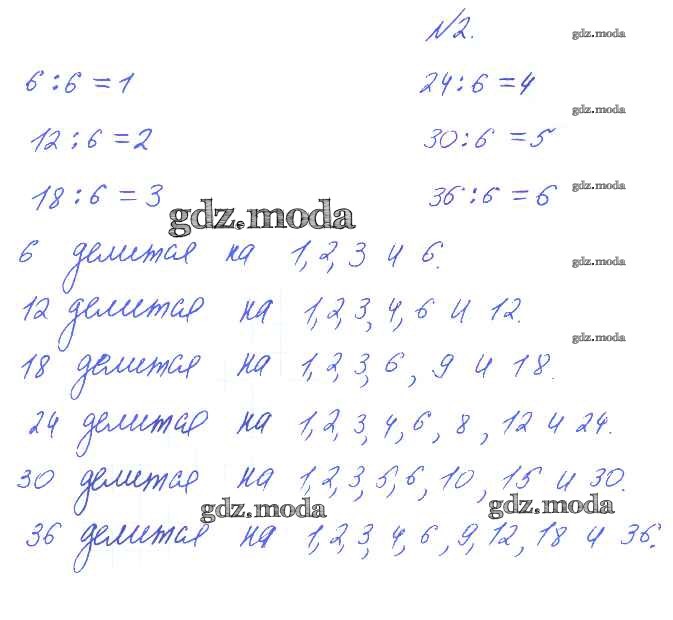 №2. gdz.moda
6 : 6 = 1 24 : 6 = 4
gdz.moda
12 : 6 = 2 30 : 6 = 5
18 : 6 = 3 36 : 6 = 6 gdz.moda
gdz.moda
6 делится на 1, 2, 3 и 6. gdz.moda
12 делится на 1, 2, 3, 4, 6 и 12.
gdz.moda
18 делится на 1, 2, 3, 6, 9 и 18.
24 делится на 1, 2, 3, 4, 6, 8, 12 и 24.
30 делится на 1, 2, 3, 5, 6, 10, 15 и 30.
gdz.moda gdz.moda
36 делится на 1, 2, 3, 4, 6, 9, 12, 18 и 36.